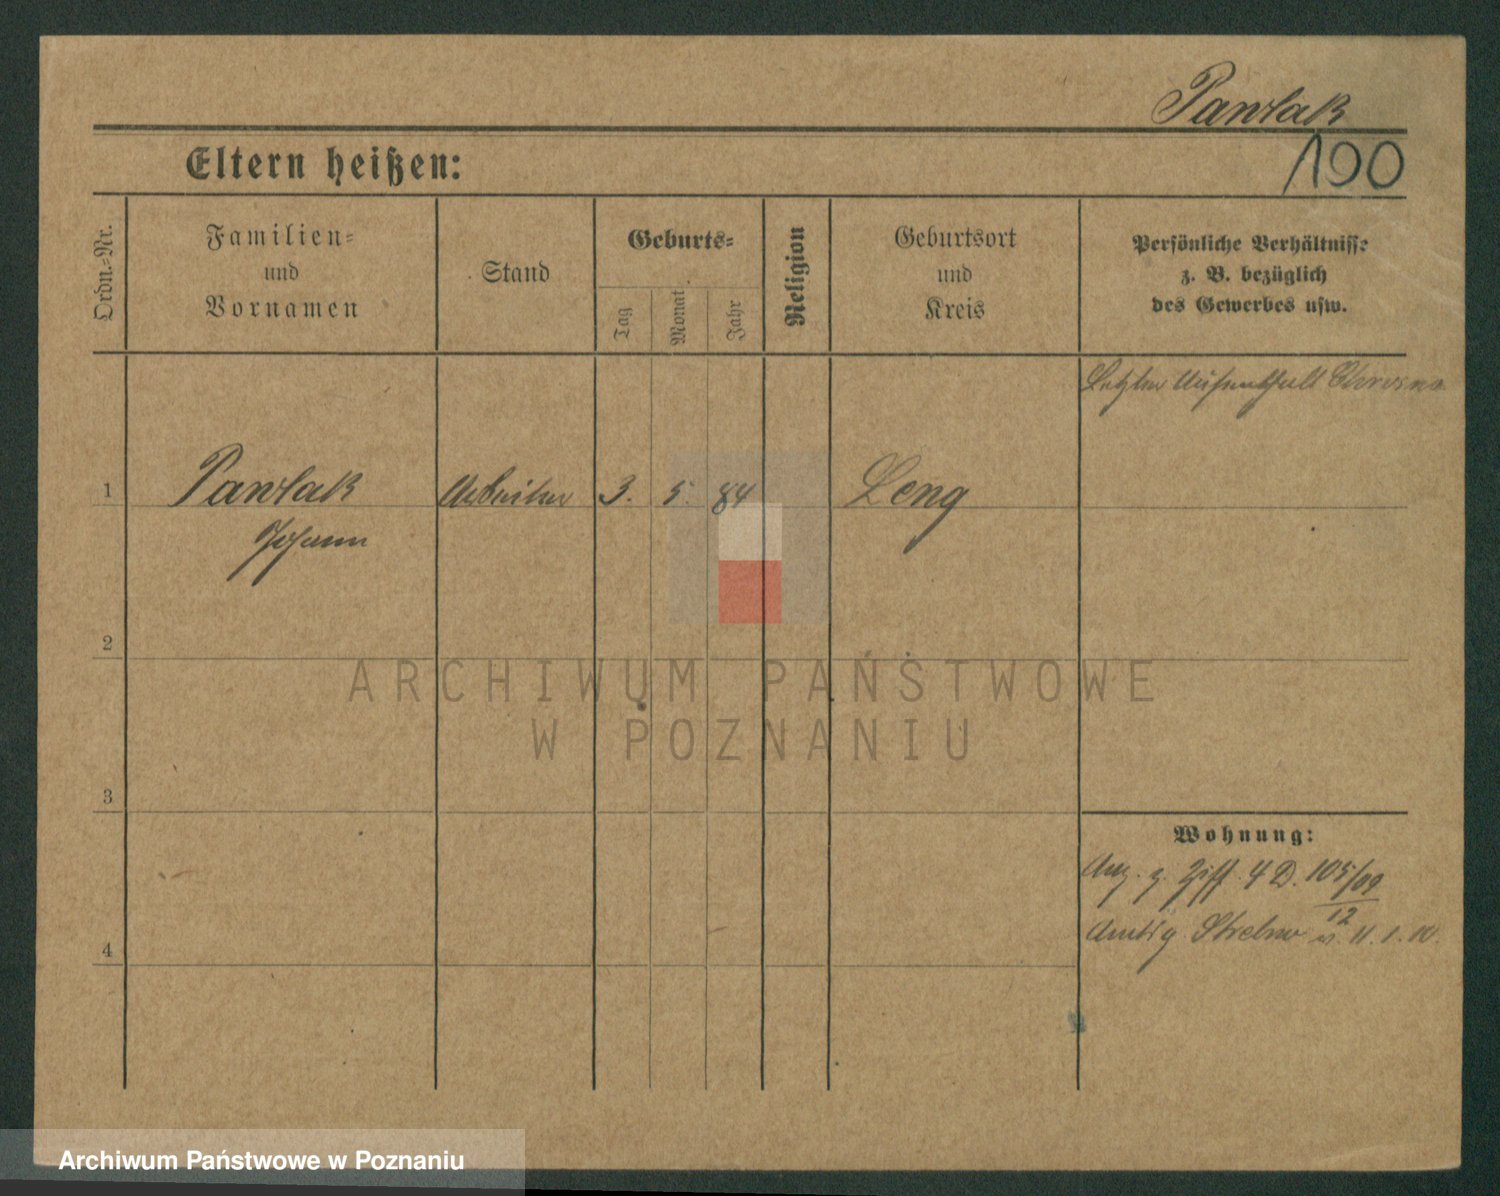 Pawlak
190
Eltern heißen:
Ordn.-Nr.
Familien-
und
Vornamen
Stand
Geburts-
Tag
Monat
Jahr
Religion
Geburtsort
und
Kreis
Persönliche Verhältnisse
z. B. bezüglich
des Gewerbes usw.
Letzter Aufenthalt
1
Pawlak
Arbeiter
3.
5.
84
Leng
Johann
2
3
4
Wohnung:
Anz. z. Ziff. 4 D. 105/09
12
Amtsg Strelno v. 11.1.10.
ARCHIWUM PAŃSTWOWE
W POZNANIU
Archiwum Państwowe w Poznaniu